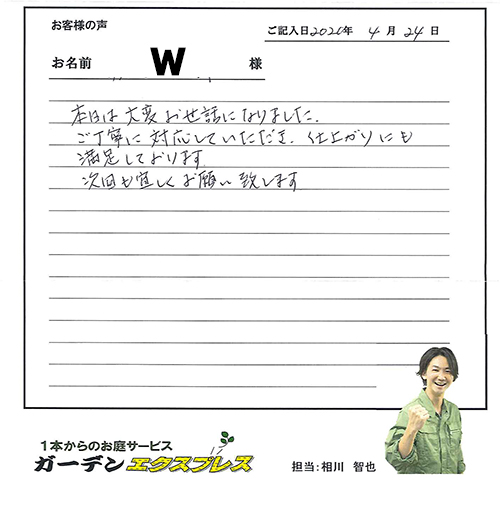 お客様の声
ご記入日2020年 4月 24日
お名前 W 様
本日は大変お世話になりました.
ご丁寧に対応していただき、仕上がりにも
満足しております
次回も宜しくお願い致します
1本からのお庭サービス
ガーデンエクスプレス
担当:相川 智也